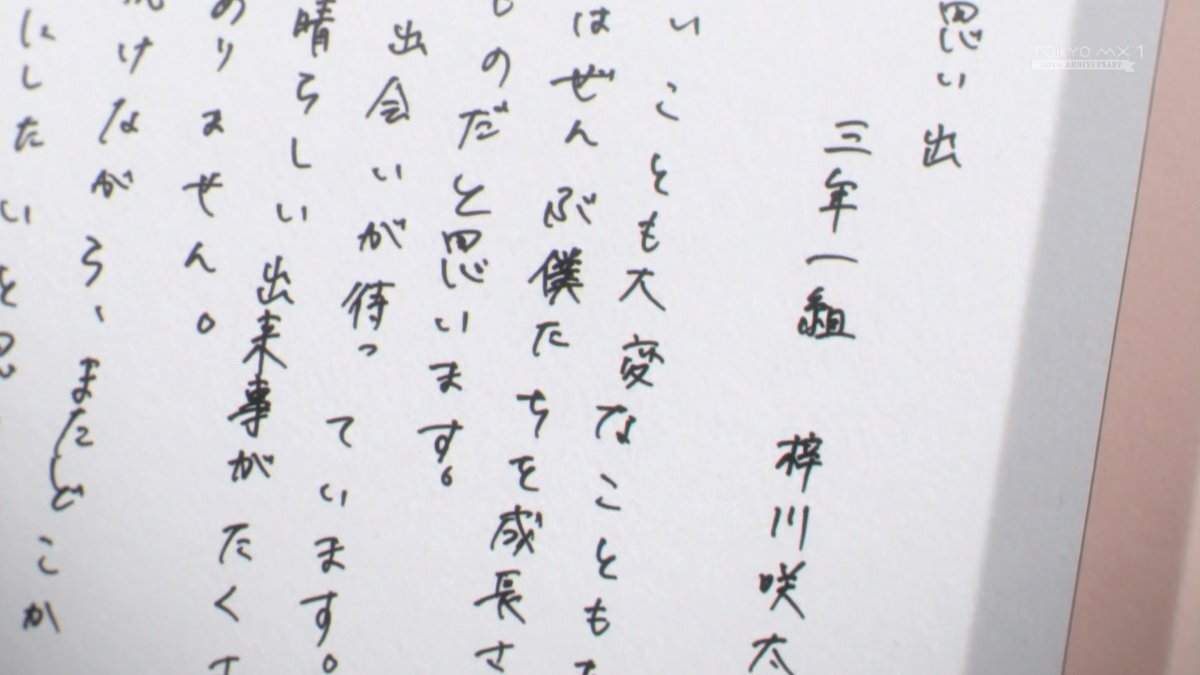 思い出
三年一組 梓川咲太
いことも大変なことも
はぜんぶ僕たちを成長さ
ものだと思います。
出会いが待っています。
晴らしい出来事がたくさ
ありません。
けながら、またどこか
にしたいと思
TOKYO MX 1